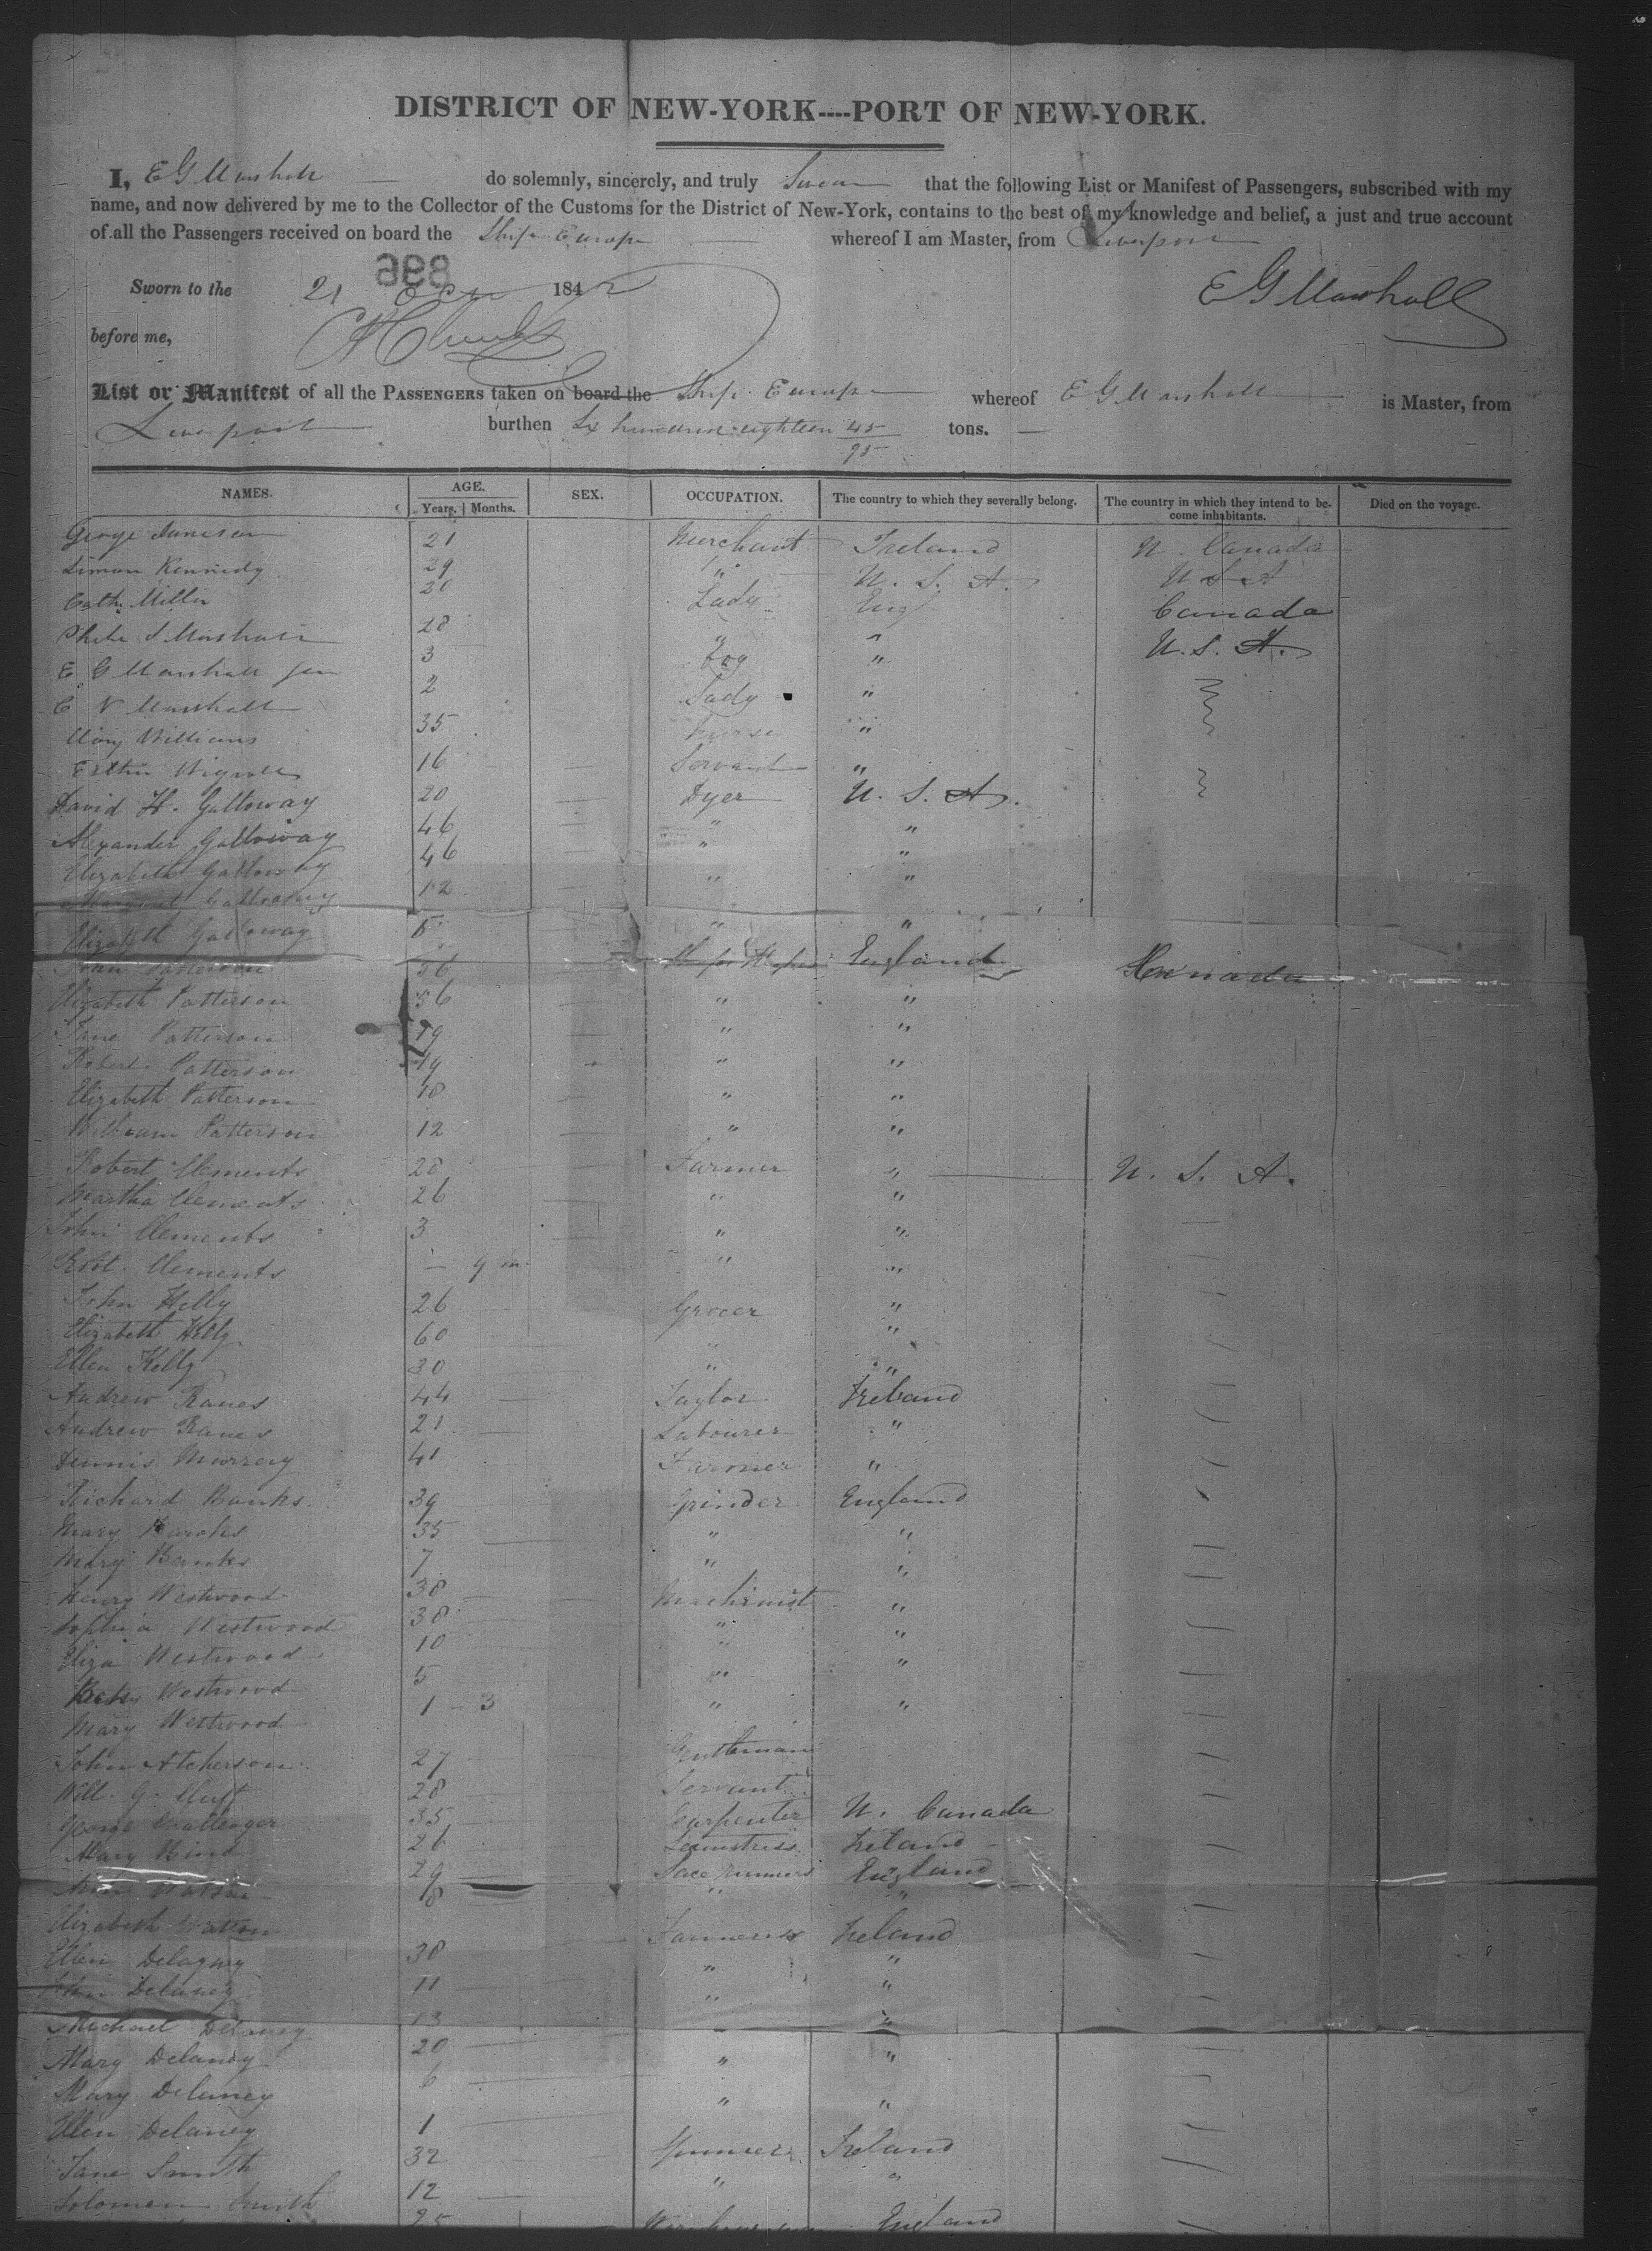 DISTRICT OF NEW-YORK----PORT OF NEW-YORK.
I, E G Marshall do solemnly, sincerely, and truly Swear that the following List or Manifest of Passengers, subscribed with my
name, and now delivered by me to the Collector of the Customs for the District of New-York, contains to the best of my knowledge and belief, a just and true account
of all the Passengers received on board the Ship Europe whereof I am Master, from Liverpool
896
Sworn to the 21 1842 E G Marshall
before me,
List or Manifest of all the PASSENGERS taken on board the Ship Europe whereof E G Marshall is Master, from
Liverpool burthen Six hundred eighteen 45/95 tons.
NAMES. AGE. SEX. OCCUPATION. The country to which they severally belong. The country in which they intend to be- Died on the voyage.
Years. Months. come inhabitants.
George Jameson 21 Merchant Ireland U. Canada
Simon Kennedy 29 " U. S. A. U S A
Cath. Miller 20 Lady Eng Canada
Marshall 28 " " U. S. A.
E G Marshall Jun 3 Boy "
C V Marshall 2 Lady "
Mary Williams 35 Nurse "
Esther 16 Servant "
David H. Galloway 20 Dyer U. S. A.
Alexander Galloway 46 " "
Elizabeth Galloway 46 " "
Margaret Galloway 12 " "
Elizabeth Galloway " "
John Patterson 56 England Canada
Elizabeth Patterson 56 " "
Jane Patterson 19 " "
Robert Patterson 19 " "
Elizabeth Patterson 18 " "
William Patterson 12 " "
Robert Clements 28 Farmer " U. S. A.
Martha Clements 26 " "
John Clements 3 " "
Robt. Clements 9 m " "
John Kelly 26 Grocer "
Elizabeth Kelly 60 " "
Ellen Kelly 30 " "
Andrew Ranes 44 Taylor Ireland
Andrew Ranes 21 Labourer "
Dennis Murrery 41 Farmer "
Richard Banks 39 Grinder England
Mary Banks 35 " "
Mary Banks 7 " "
Henry Westwood 38 Machinist "
Sophia Westwood 38 " "
Eliza Westwood 10 " "
Betsy Westwood 5 "
Mary Westwood 1 - 3 " "
John Atcherson 27 Gentleman
Will. G. Cluff 28 Servant
George Challenger 35 Carpenter U. Canada
Mary 26 Seamstress Ireland
Ann Watson 29 Lace runners England
Elizabeth Watson 18 " "
Ellen Delaney 38 Farmeress Ireland
John Delaney 11 " "
Michael Delaney 13 " "
Mary Delaney 20 "
Mary Delaney 6 " "
Ellen Delaney 1 " "
Jane Smith 32 Spinner Ireland
Solomon Smith 12 " "
25 England